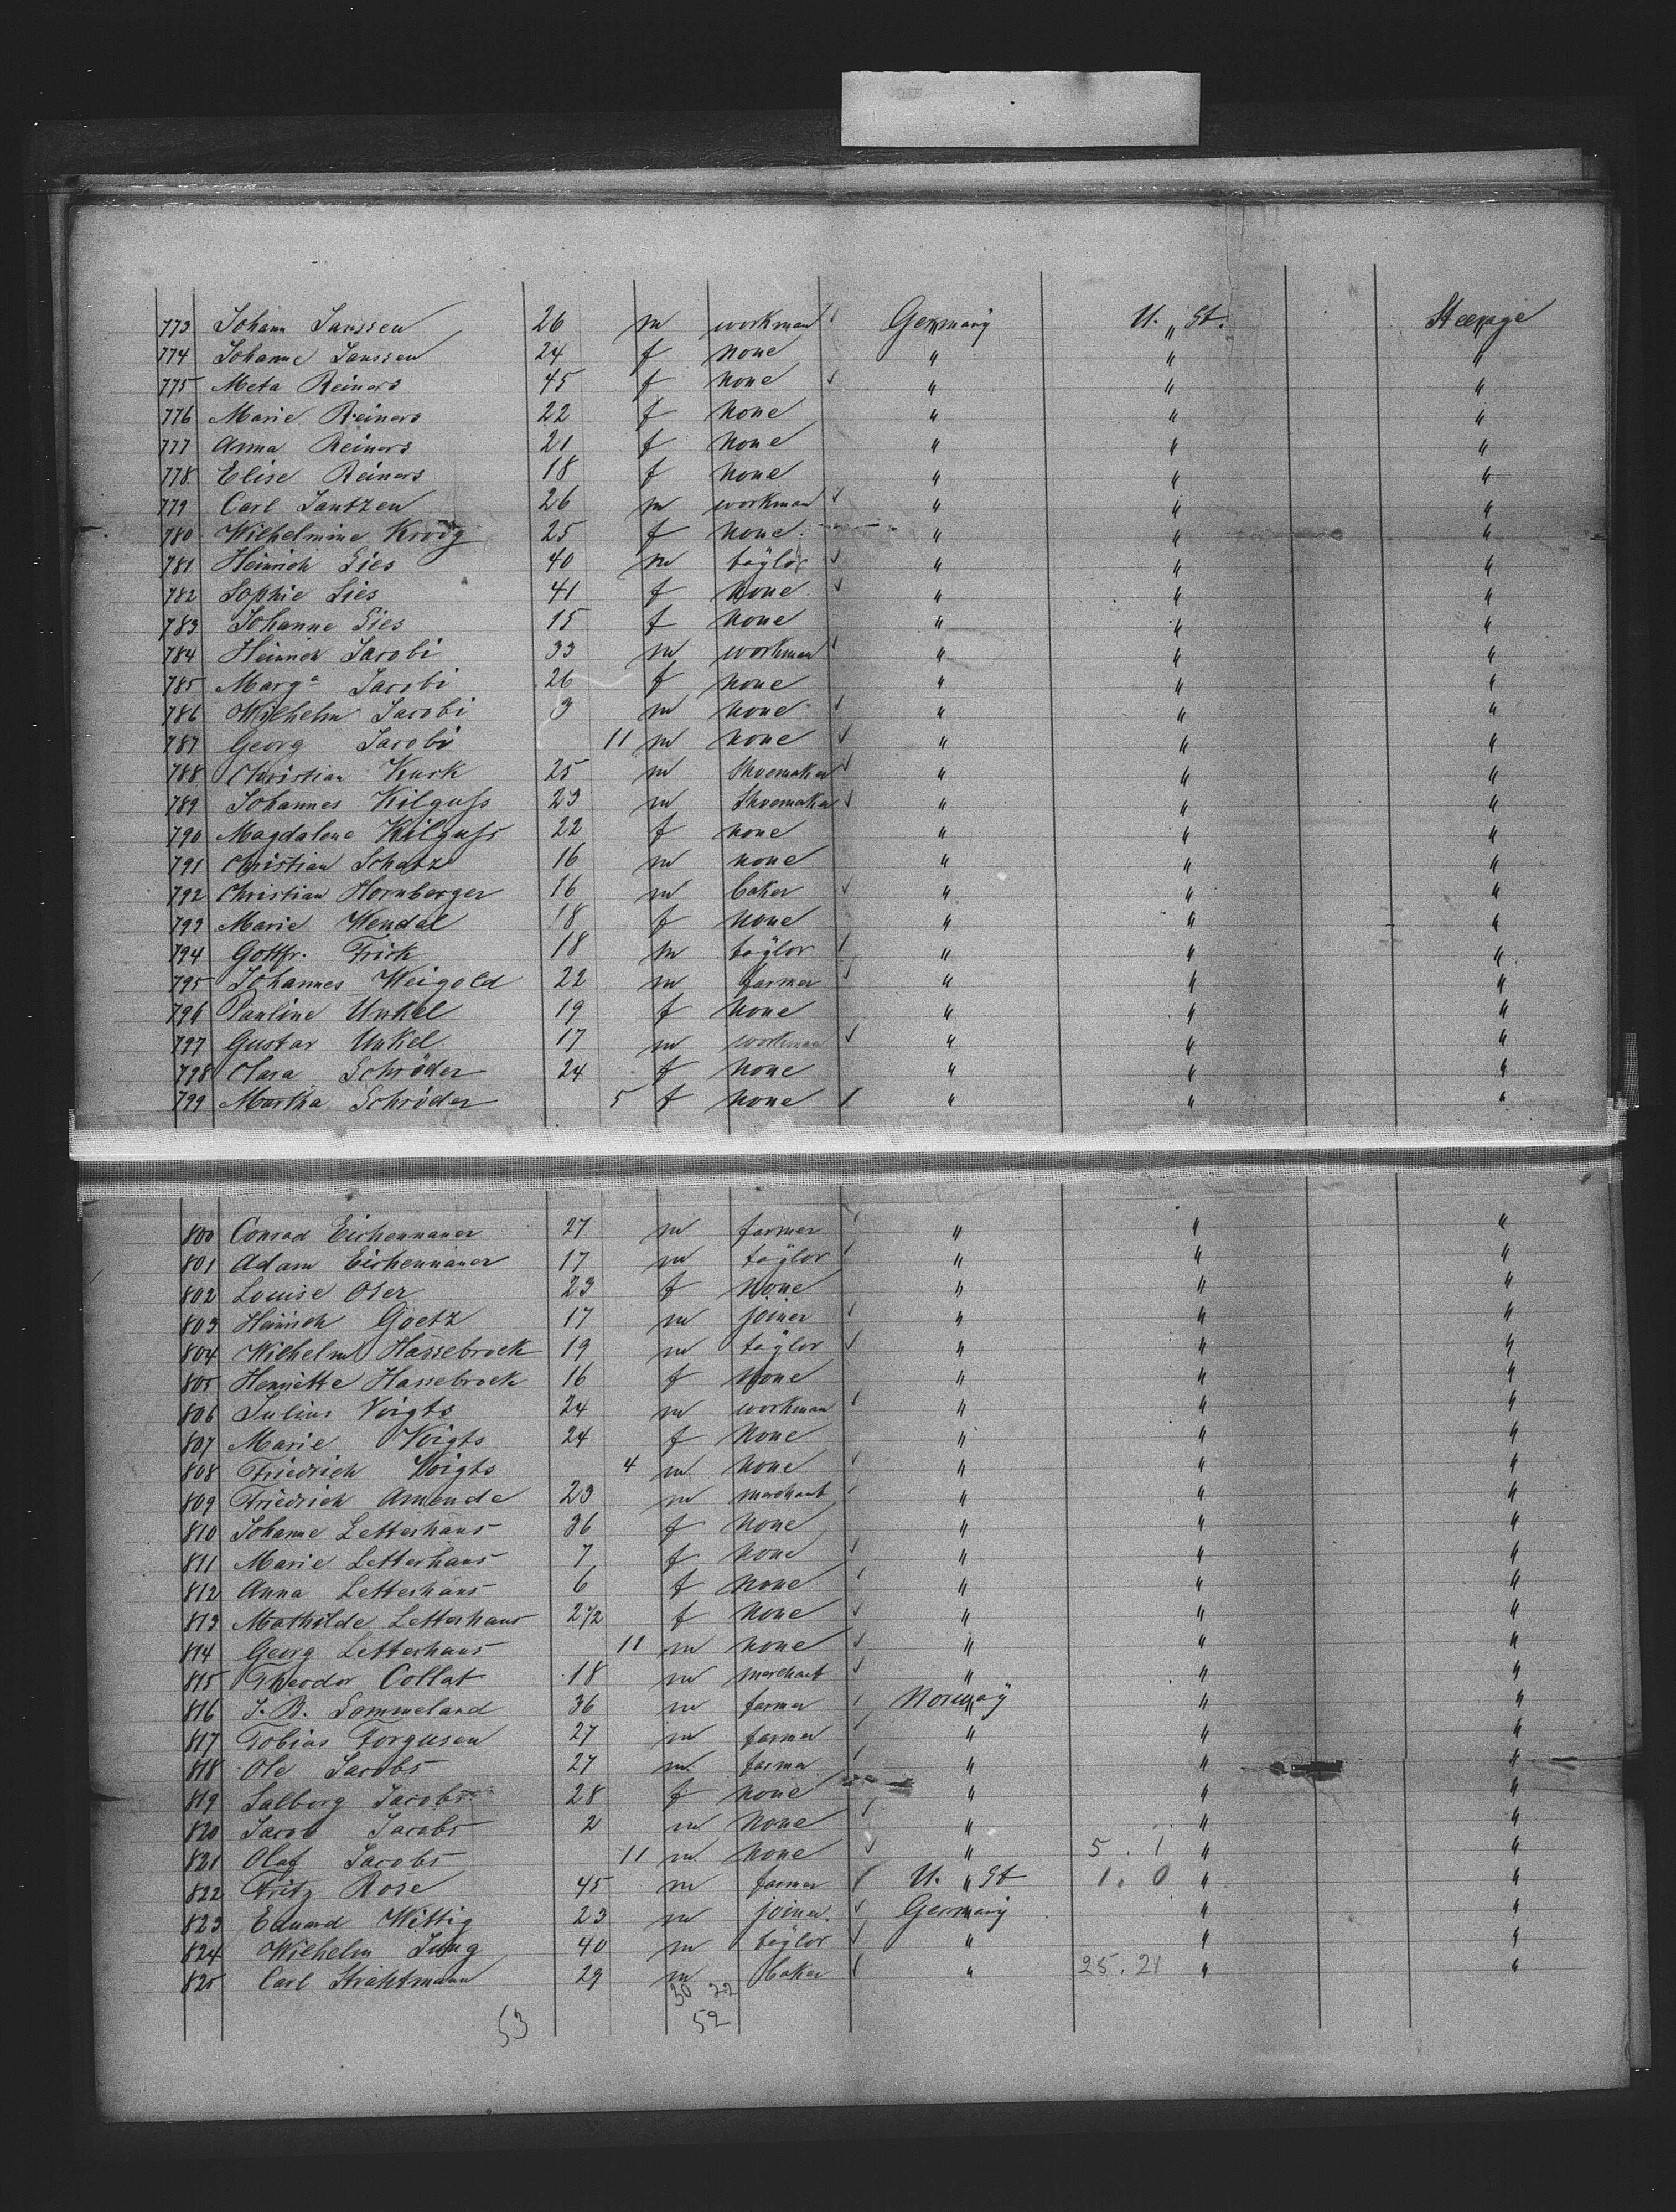 773 Johann Janssen 26 m workman Germany U. St. Steerage
774 Johanne Janssen 24 f none " " "
775 Meta Reiners 45 f none " " "
776 Marie Reiners 22 f none " " "
777 Anna Reiners 21 f none " " "
778 Elise Reiners 18 f none " " "
779 Carl Jantzen 26 m workman " " "
780 Wilhelmine Kroog 25 f none " " "
781 Heinrich Lies 40 m taylor " " "
782 Sophie Lies 41 f none " " "
783 Johanne Lies 15 f none " " "
784 Heinrich Jacobi 33 m workman " " "
785 Marga Jacobi 26 f none " " "
786 Wilhelm Jacobi 3 m none " " "
787 Georg Jacobi 11 m none " " "
788 Christian Kuck 25 m Shoemaker " " "
789 Johannes Kilguss 23 m Shoemaker " " "
790 Magdalene Kilguss 22 f none " " "
791 Christian Schatz 16 m none " " "
792 Christian Hornberger 16 m baker " " "
793 Marie Wendel 18 f none " " "
794 Gottfr. Frick 18 m taylor " " "
795 Johannes Weigold 22 m farmer " " "
796 Pauline Unkel 19 f none " " "
797 Gustav Unkel 17 m workman " " "
798 Clara Schröder 24 f none " " "
799 Martha Schröder 5 f none " " "
800 Conrad Eichennauer 27 m farmer " " "
801 Adam Eichennauer 17 m taylor " " "
802 Louise Oser 23 f none " " "
803 Heinrich Goetz 17 m joiner " " "
804 Wilhelm Hassebrock 19 m taylor " " "
805 Henriette Hassebrock 16 f none " " "
806 Julius Voigts 24 m workman " " "
807 Marie Voigts 24 f none " " "
808 Friedrich Voigts 4 m none " " "
809 Friedrich Amende 23 m merchant " " "
810 Johanne Letterhaus 36 f none " " "
811 Marie Letterhaus 7 f none " " "
812 Anna Letterhaus 6 f none " " "
813 Mathilde Letterhaus 2 1/2 f none " " "
814 Georg Letterhaus 11 m none " " "
815 Theodor Collat 18 m merchant " " "
816 J. B. Sommeland 36 m farmer Norway " "
817 Tobias Torgusen 27 m farmer " " "
818 Ole Jacobs 27 m farmer " " "
819 Salborg Jacobs 28 f none " " "
820 Jacob Jacobs 2 m none " " "
821 Olaf Jacobs 11 m none " 5 . 1 " "
822 Fritz Rose 45 m farmer U. St 1 . 0 " "
823 Eduard Wittig 23 m joiner Germany " "
824 Wilhelm Jung 40 m taylor " " "
825 Carl Strahtmann 29 m baker " 25 . 21 " "
30 22
53 52